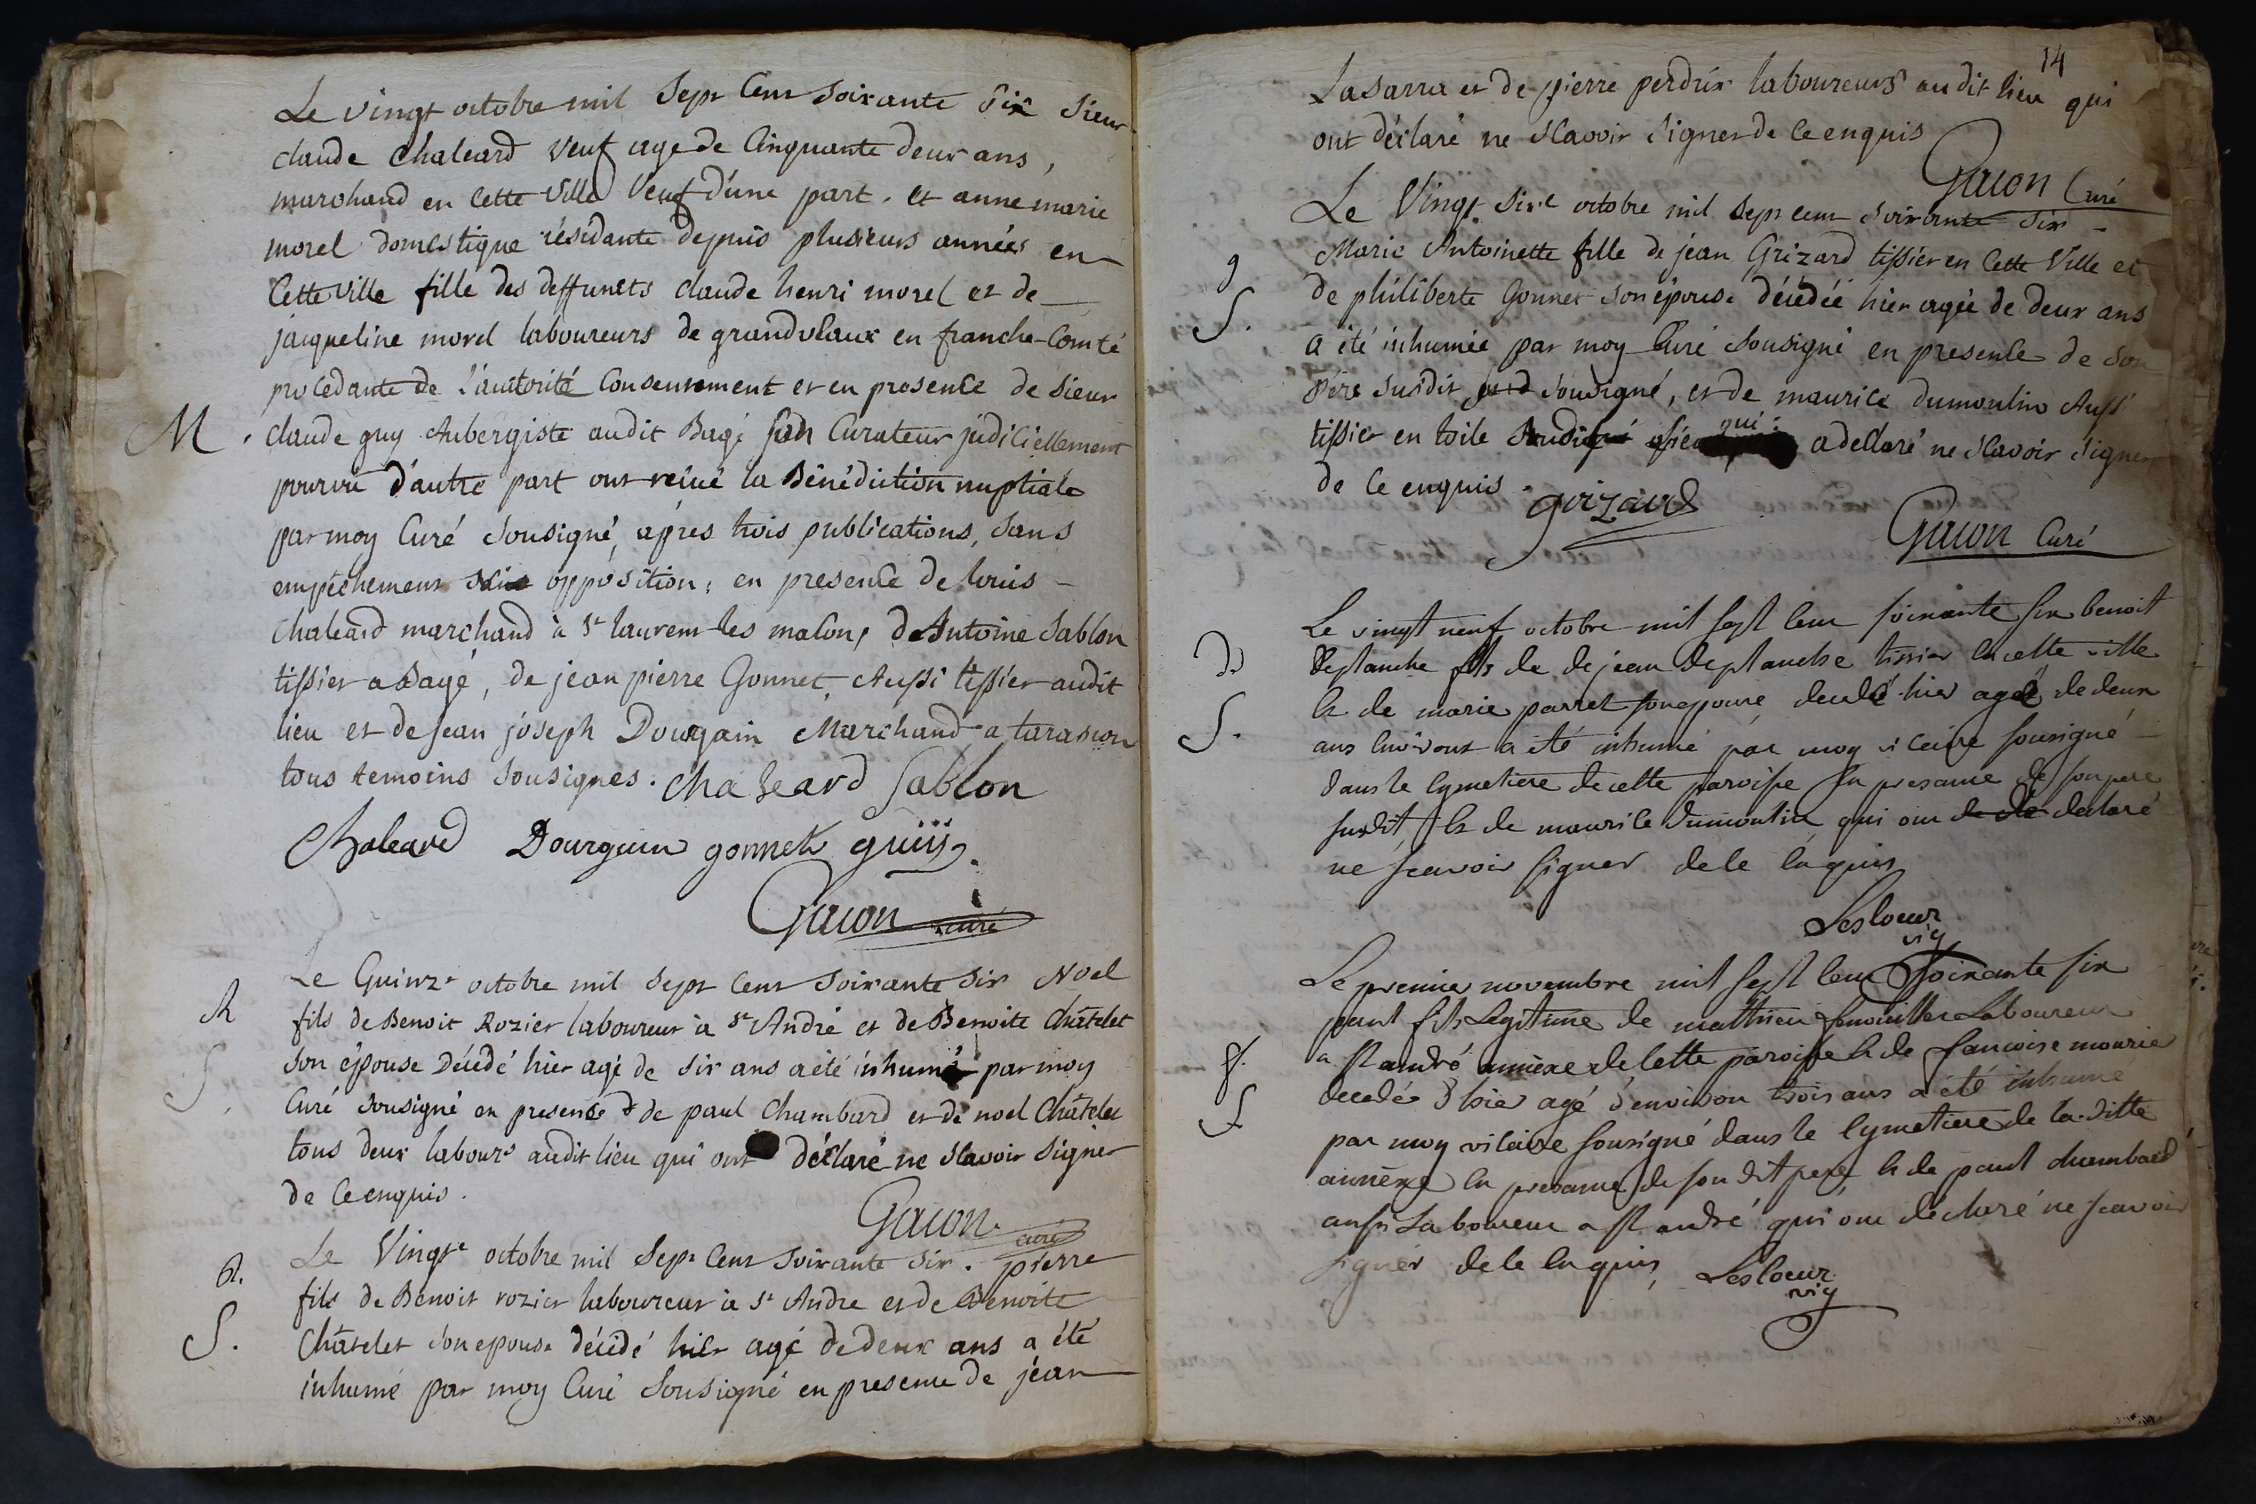 Le vingt octobre mil Sept Cent soixante Six Sieur
claude Chaleard veuf agé de Cinquante deux ans,
marchand en Cette Ville veuf d'une part. et anne marie
morel domestique résidante depuis plusieurs années en
Cette ville fille des deffuncts claude henri morel et de
jacqueline morel laboureurs de grandvlaux en franche-Comté
procedante de l'authorité Consentement et en presence de Sieur
M. claude guy Aubergiste audit Bagé son Curateur judiciellement
pourvu d'autre part ont reçué la Bénédiction nuptiale
par moy Curé Sousigné, après trois publications, sans
empêchement opposition, en presence de louis
Chaleard marchand à St laurent les macon, d'Antoine Sablon
tissier a Bagé, de jean pierre Gonnet, Aussi tissier audit
lieu et de Jean joseph Dourgain Marchand a tarascon
tous temoins sousignés. Chaleard Sablon
Chaleard Dourguin gonnet guÿ
Gacon curé
Le Quinze octobre mil Sept Cent Soixante Six Noel
R fils de Benoit Rozier laboureur à St André et de Benoite Châtelet
son épouse Décédé hier agé de Six ans a été inhumé par moy
S. Curé sousigné en presence de paul Chambard et de noel Châtelet
tous deux labours audit lieu qui ont déclaré ne scavoir signer
de Ce enquis.
Gacon curé
Le Vingte octobre mil Sept Cent soixante six. pierre
R. fils de Benoit rozier laboureur à St Andre et de Benoite
S. Châtelet son epouse décédé hier agé de deux ans a été
inhumé par moy Curé Sousigné en presence de jean
14
Lasarra et de pierre perdrix laboureurs audit lieu qui
ont déclaré ne scavoir Signer de Ce enquis
Gacon Curé
Le Vingt Sixe octobre mil sept cent soixante six
g Marie Antoinette fille de jean Grizard tissier en Cette Ville et
S. de philiberte Gonnet son épouse décédée hier agée de deux ans
a été inhumée par moy Curé Sousigné en presence de Son
Père susdit sousigné, et de maurice dumoulin Aussi
tissier en toile qui a déclaré ne scavoir signer
de Ce enquis.
grizard
Gacon Curé
Le vingt neuf octobre mil sept cent soixante six benoit
D deplanche fils de de jean deplanche tissier en cette ville
S. et de marie parret son epouse decedé hier agé de deux
ans environt a été inhumé par moy vicaire sousigné
dans le cymetiere de cette paroisse en presance de son pere
susdit et de maurice dumoulin qui ont de clé declaré
ne scavoir signer de ce enquis
Lescoeur vic
Le premier novembre mil sept cent soixante six
paul fils Legitime de mathieu fenouiller Laboureur
f. a St andré annèxe de cette paroisse et de francoise mourie
S. decedé hier agé d'environ trois ans a été inhumé
par moy vicaire sousigné dans le cymetiere de la ditte
annèxe en presance de son dit pere et de paul chambard
aussi Laboureur a St andré qui ont déclaré ne scavoir
signer de ce enquis, Lescoeur vic